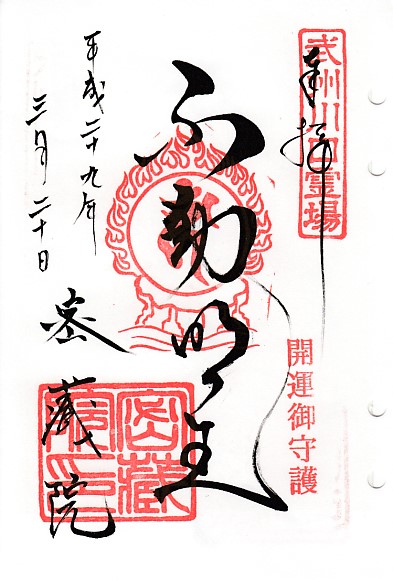 武州川口霊場
奉拝
開運御守護
不動明王
平成二十九年
三月二十日
密蔵院
密蔵
院印